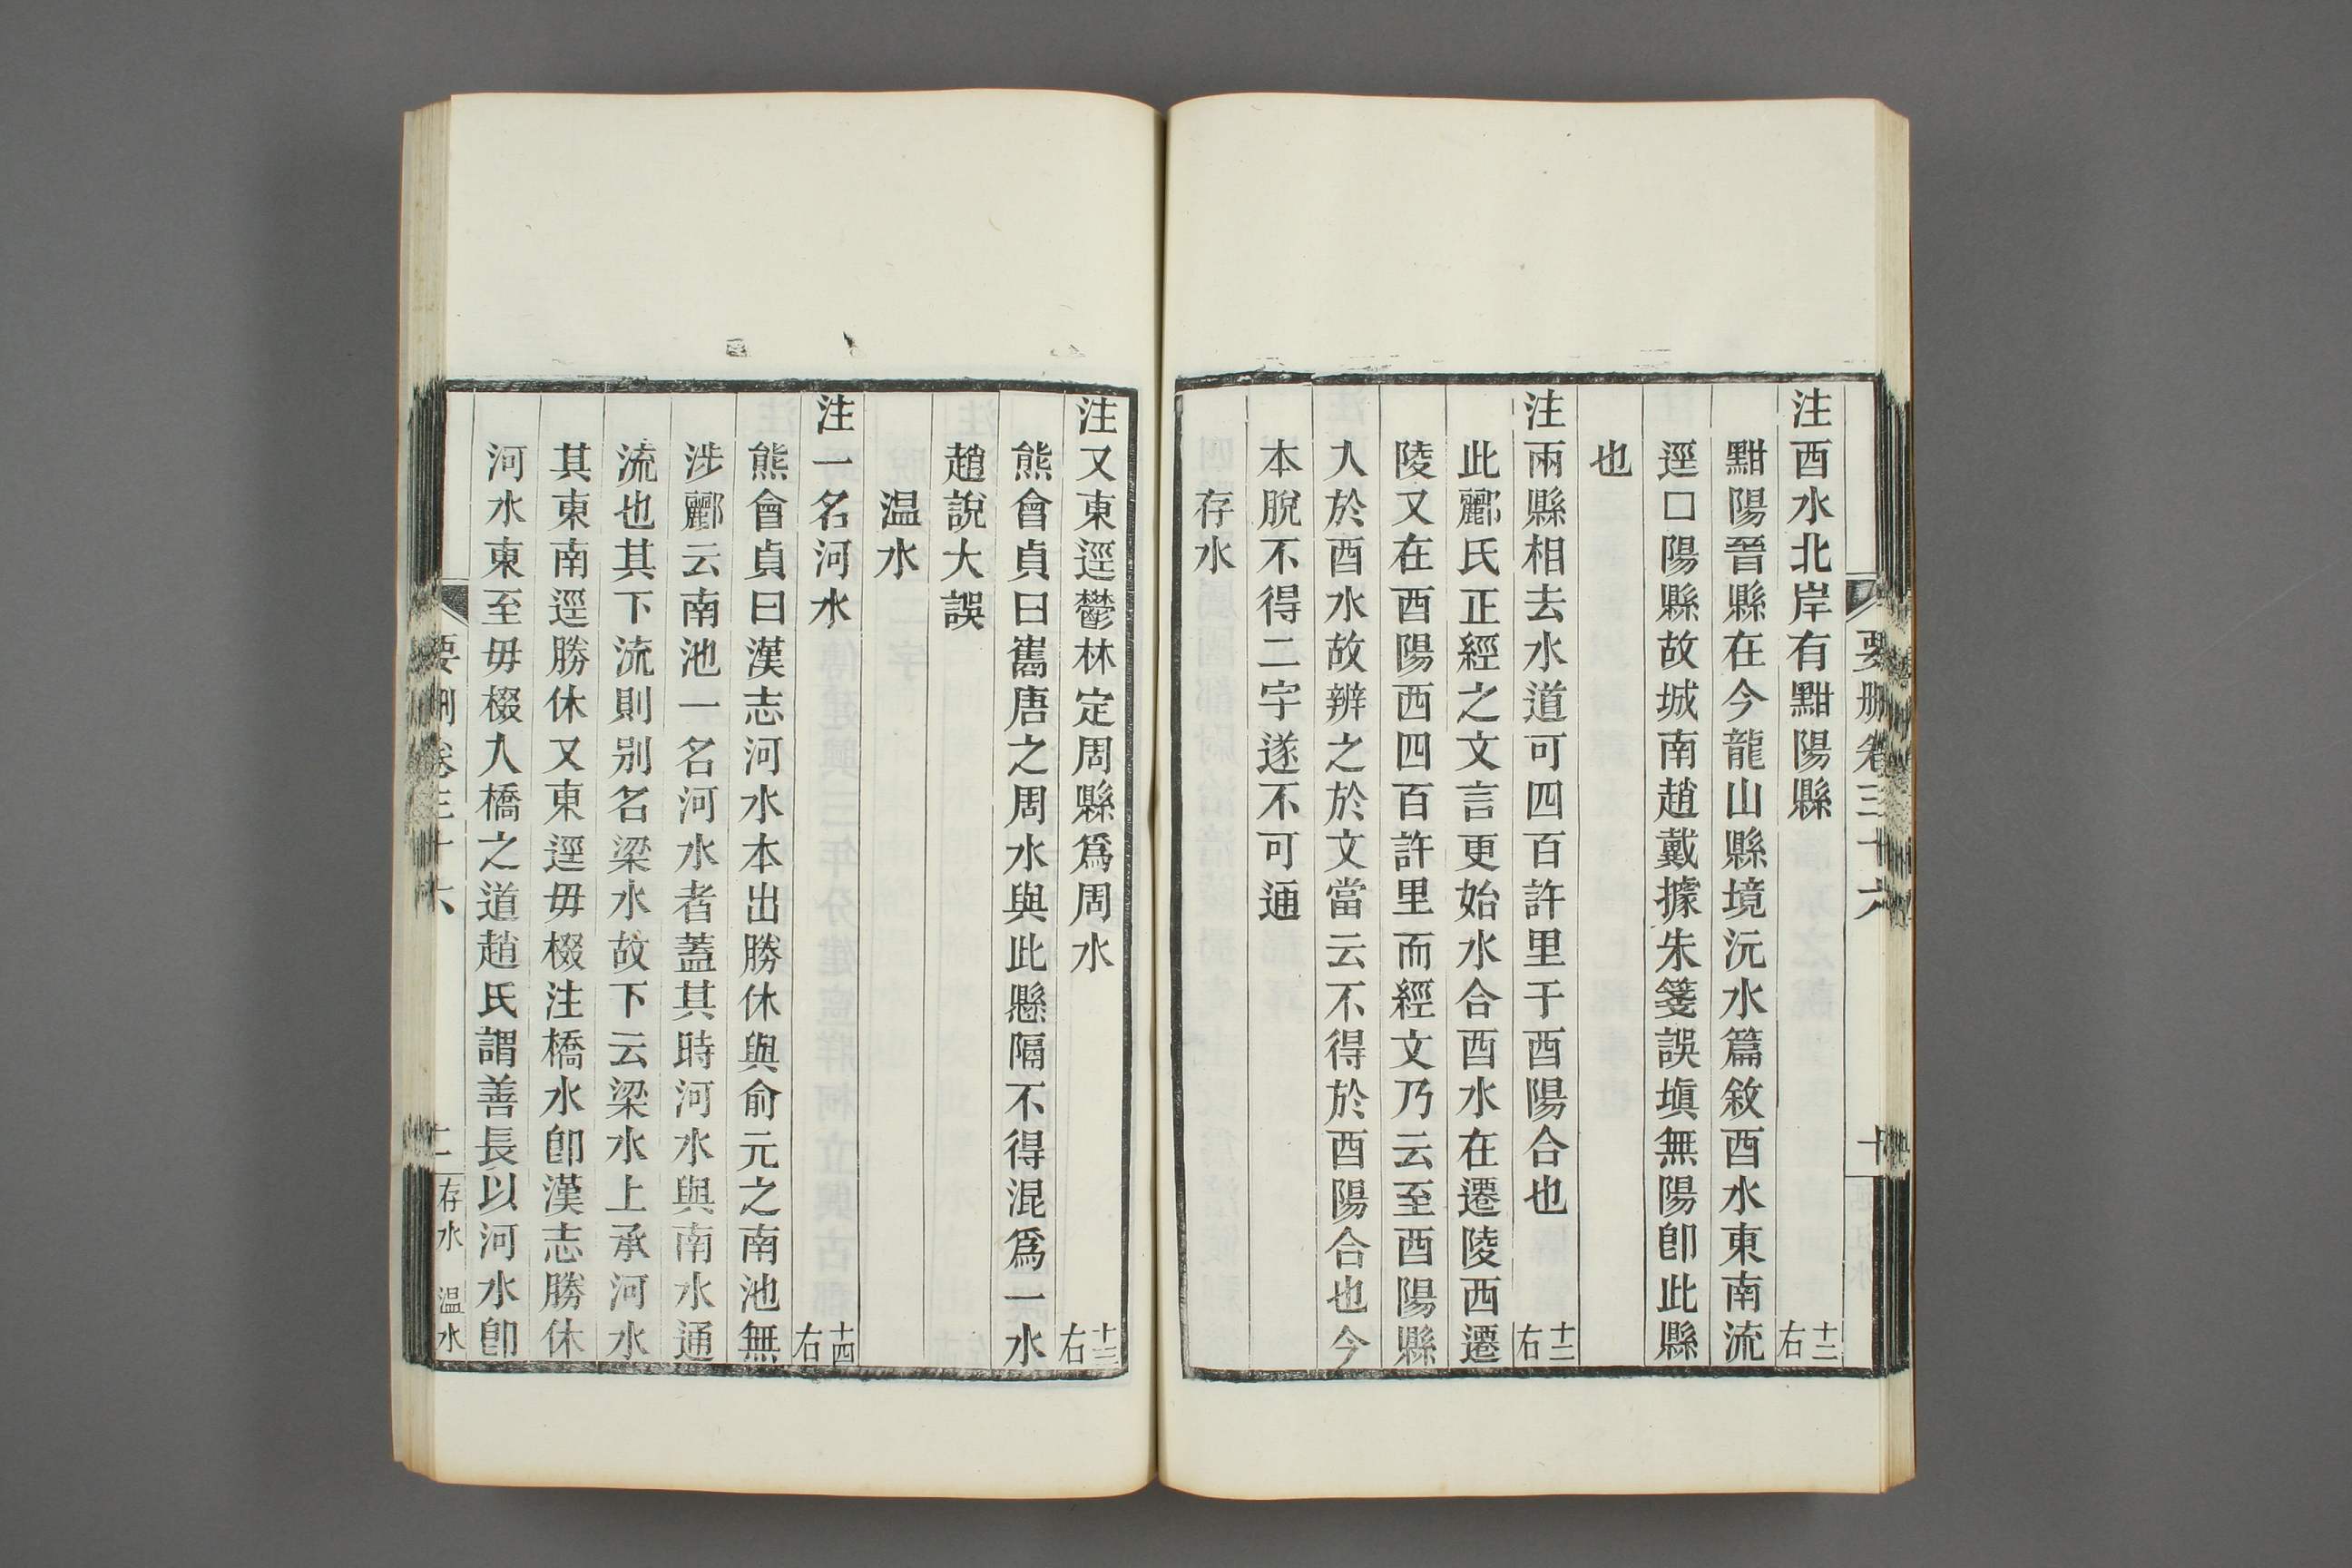 注酉水北岸有黚陽縣 十二右
黚陽晉縣在今龍山縣境沅水篇敘酉水東南流
逕口陽縣故城南趙戴據朱箋誤塡無陽卽此縣
也
注兩縣相去水道可四百許里于酉陽合也 十二右
此酈氏正經之文言更始水合酉水在遷陵西遷
陵又在酉陽西四百許里而經文乃云至酉陽縣
入於酉水故辨之於文當云不得於酉陽合也今
本脫不得二字遂不可通
存水
注又東逕鬱林定周縣爲周水 十三右
熊會貞曰舊唐之周水與此懸隔不得混爲一水
趙說大誤
温水
注一名河水 十四右
熊會貞曰漢志河水本出勝休與俞元之南池無
涉酈云南池一名河水者蓋其時河水與南水通
流也其下流則别名梁水故下云梁水上承河水
其東南逕勝休又東逕毋棳注橋水卽漢志勝休
河水東至毋棳入橋之道趙氏謂善長以河水卽
要刪卷三十六 存水 温水